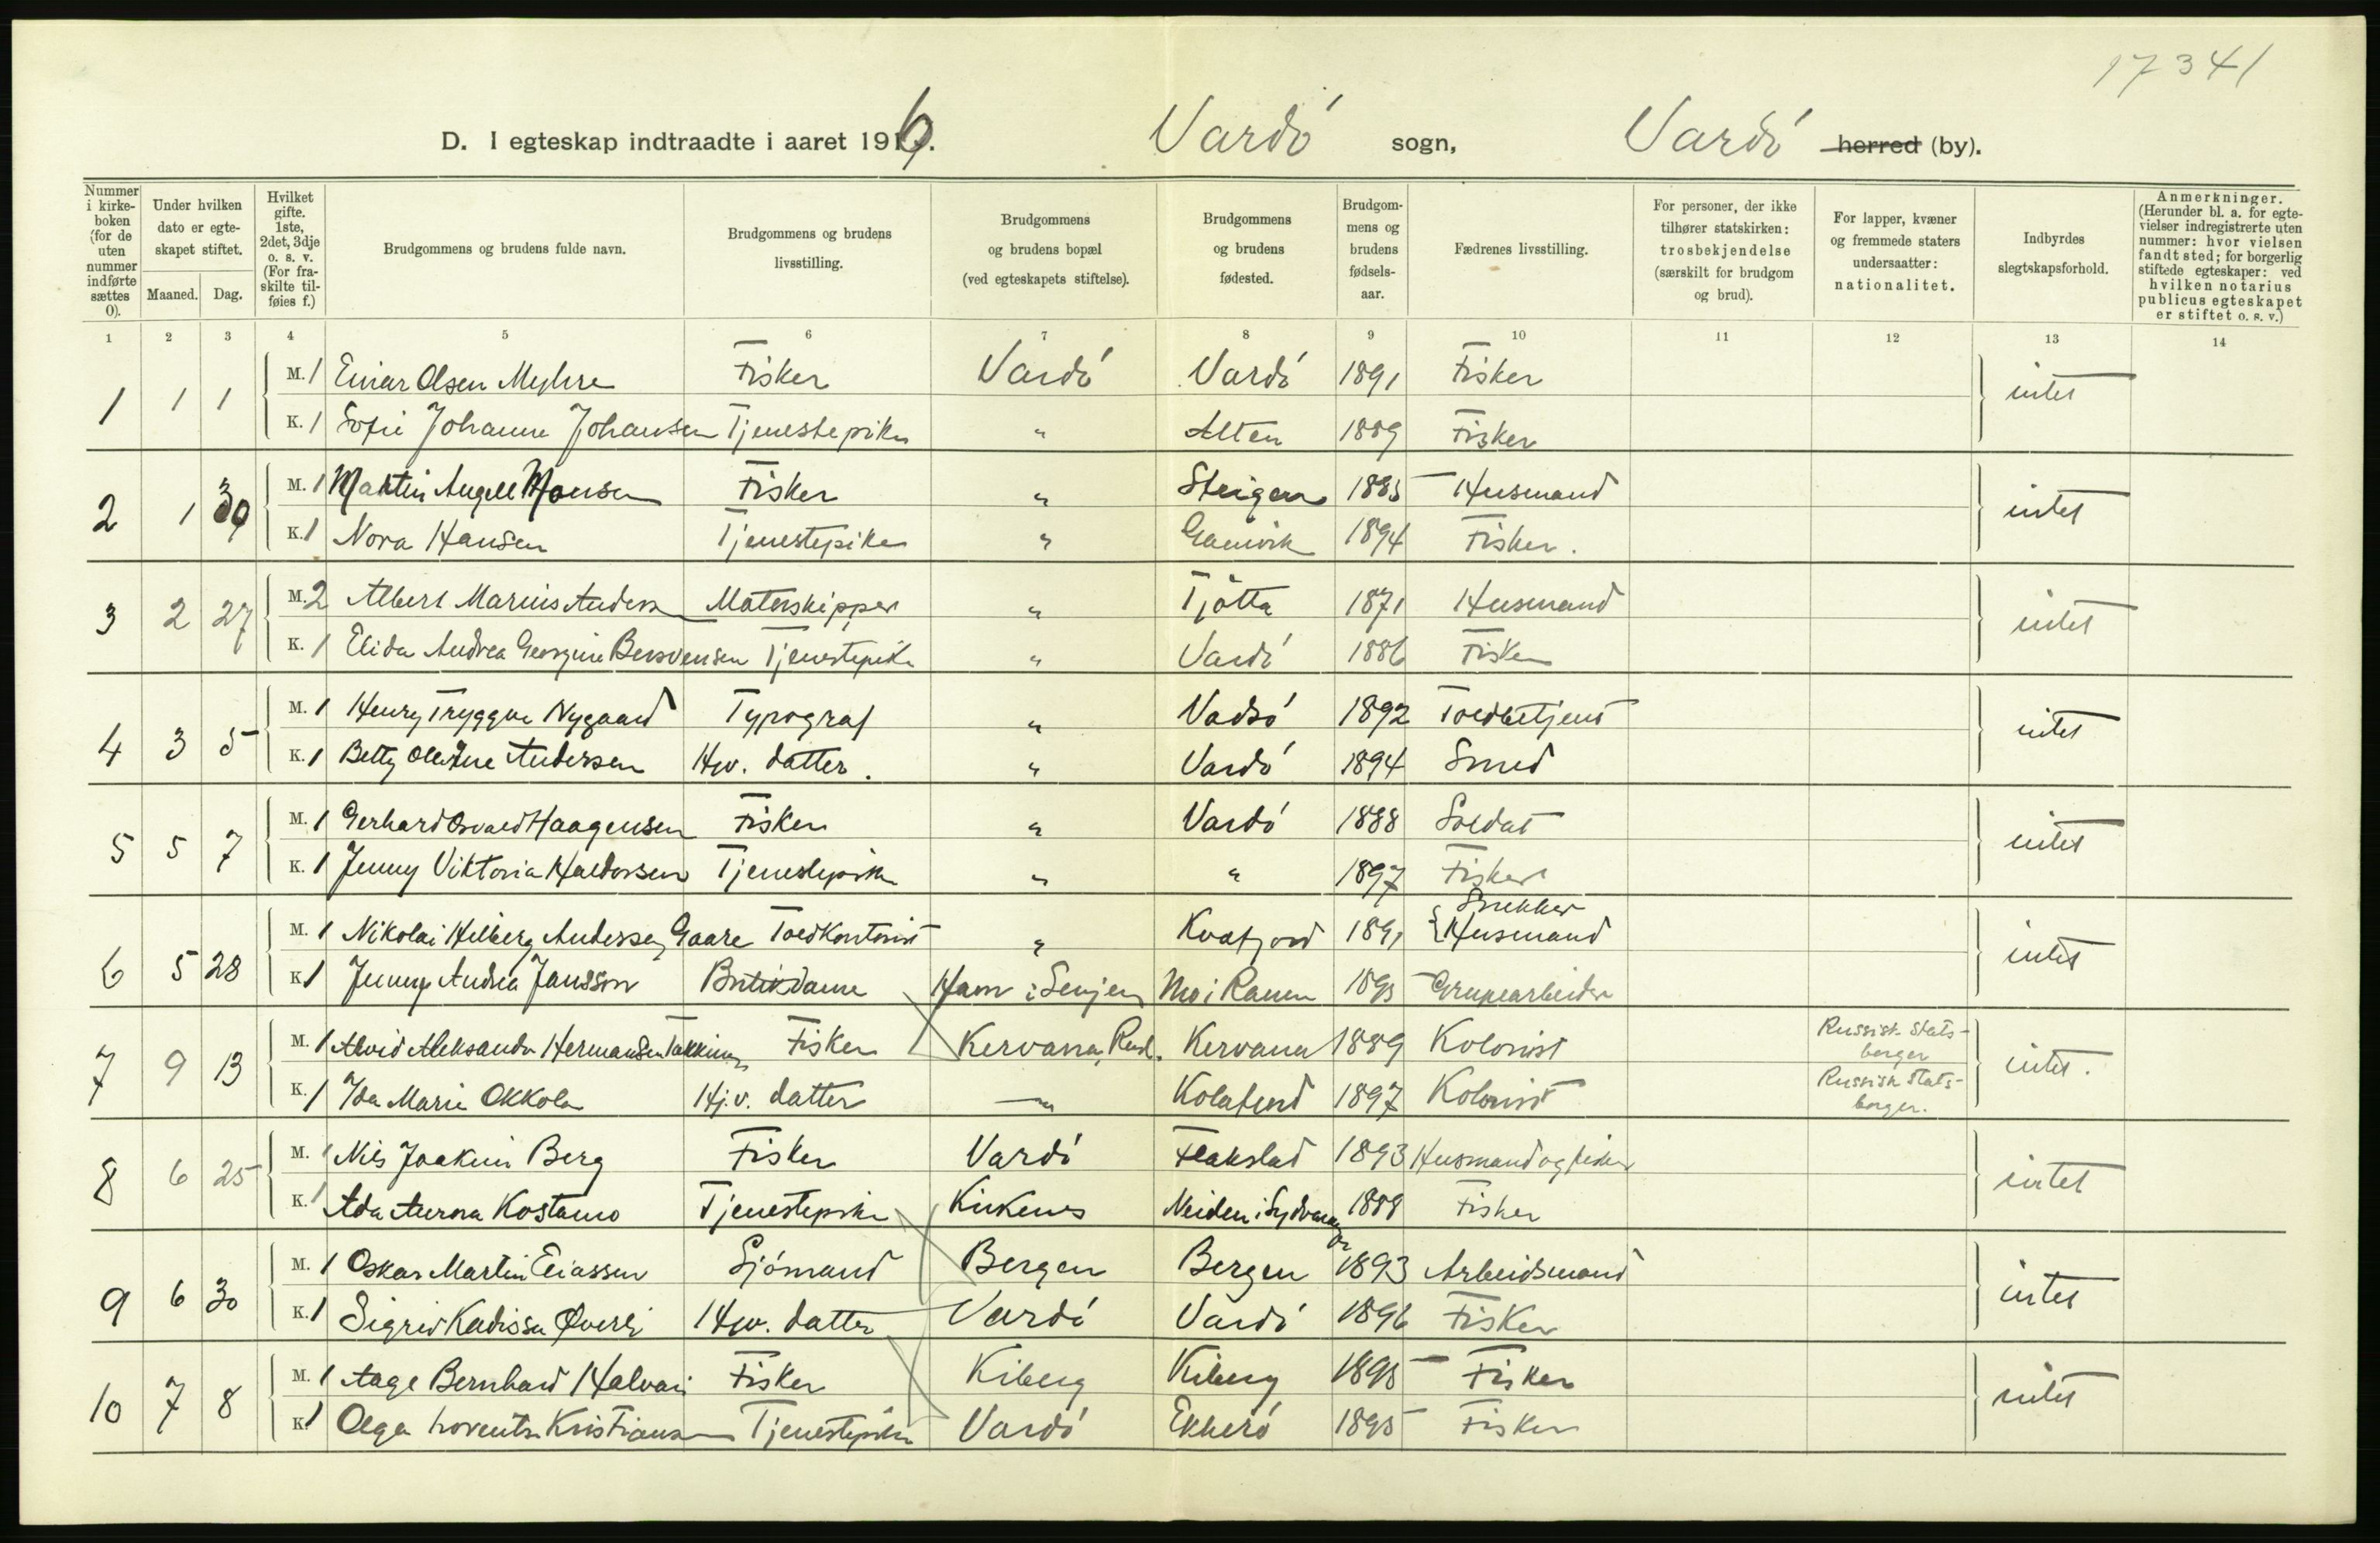 17341
D. I egteskap indtraadte i aaret 1916. Vardö sogn, Vardö herred (by).
Nummer i kirkeboken (for de uten nummer indførte sættes 0).
Under hvilken dato er egteskapet stiftet. Maaned. Dag.
Hvilket gifte. 1ste, 2det, 3dje o. s. v. (For fraskilte tilføies f.)
Brudgommens og brudens fulde navn.
Brudgommens og brudens livsstilling.
Brudgommens og brudens bopæl (ved egteskapets stiftelse).
Brudgommens og brudens fødested.
Brudgommens og brudens fødselsaar.
Fædrenes livsstilling.
For personer, der ikke tilhører statskirken: trosbekjendelse (særskilt for brudgom og brud).
For lapper, kvæner og fremmede staters undersaatter: nationalitet.
Indbyrdes slegtskapsforhold.
Anmerkninger. (Herunder bl. a. for egtevielser indregistrerte uten nummer: hvor vielsen fandt sted; for borgerlig stiftede egteskaper: ved hvilken notarius publicus egteskapet er stiftet o. s. v.)
1 2 3 4 5 6 7 8 9 10 11 12 13 14
1 1 1 M. 1 Einar Olsen Myhre Fisker Vardö Vardö 1891 Fisker intet
K. 1 Sofie Johanne Johansen Tjenestepike " Alten 1889 Fisker
2 1 30 M. 1 Martin Angell Monsen Fisker " Steigen 1885 Husmand intet
K. 1 Nora Hansen Tjenestepike " Gamvik 1894 Fisker.
3 2 27 M. 2 Albert Marius Andersen Matenskipper " Tjötta 1871 Husmand intet
K. 1 Elida Andrea Georgine Bersvensen Tjenestepike " Vardö 1886 Fisker
4 3 5 M. 1 Henry Tryggve Nygaard Typograf " Vadsö 1892 Toldbetjent intet
K. 1 Betty Oleane Andersen Hjv. datter. " Vardö 1894 Smed
5 5 7 M. 1 Gerhard Osvald Haagensen Fisker " Vardö 1888 Soldat intet
K. 1 Jenny Viktoria Haldorsen Tjenestepike " " 1897 Fisker
6 5 28 M. 1 Nikolai Hilberg Andersen Gaare Toldkontorist " Kvæfjord 1891 { Snekker Husmand intet
K. 1 Jenny Andrea Jansson Butikdame Ham i Senjen Mo i Ranen 1895 Grubearbeider
7 9 13 M. 1 Alvid Aleksander Hermansen Takkinen Fisker Kervana, Rusl. Kervana 1889 Kolonist Russisk Stats-
borger intet.
K. 1 Ida Marie Okkola Hj.v. datter " Kolafjord 1897 Kolonist Russisk Stats-
borger.
8 6 25 M. 1 Nils Joakim Berg Fisker Vardö Flakstad 1893 Husmand og fisker intet
K. 1 Ada Aurora Kostamo Tjenestepike Kirkenes Neiden i Sydvaranger 1888 Fisker
9 6 30 M. 1 Oskar Martin Eliassen Sjömand Bergen Bergen 1893 Arbeidsmand intet
K. 1 Sigrid Kadissa Øverli Hjv. datter Vardö Vardö 1896 Fisker
10 7 8 M. 1 Aage Bernhard Halvari Fisker Kiberg Kiberg 1895 Fisker intet
K. 1 Olga Lorentse Kristiansen Tjenestepike Vardö Ekkerö 1895 Fisker